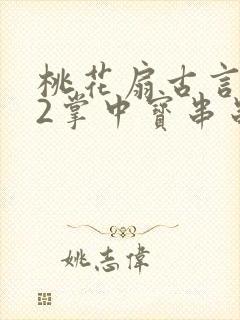 桃花扇古言
2掌中寶串
姚志偉